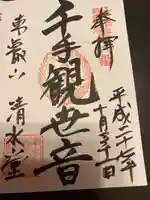 奉拝
平成二十七年
十月三十一日
千手観世音
東叡山
清水堂